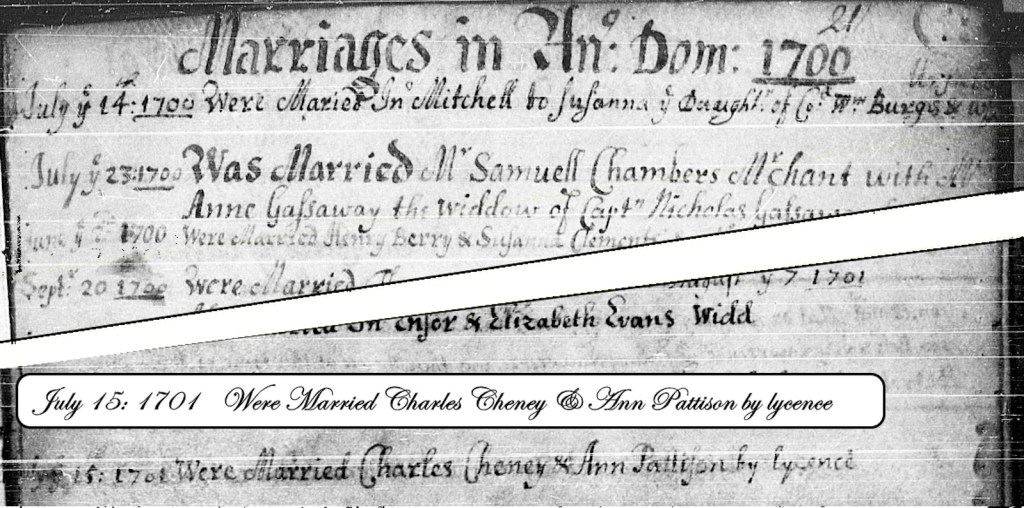 21
Marriages in Anº: Dom: 1700
July yᵉ 14: 1700 Were Maried Jnº Mitchell to susanna yᵉ Daughtʳ of Coˡ Wᵐ Burges &
July yᵉ 23: 1700 Was Married Mʳ Samuell Chambers Mʳchant with
Anne Gassaway the widdow of Captⁿ Nicholas Gassaway
June yᵉ 2ᵈ 1700 Were Married Henry Berry & Susanna Clements
Septʳ 20 1700 Were Married
August yᵉ 7 1701
Jnº Ensor & Elizabeth Evans Widd
July 15: 1701 Were Married Charles Cheney & Ann Pattison by lycence
July 15: 1701 Were Married Charles Cheney & Ann Pattison by lycence